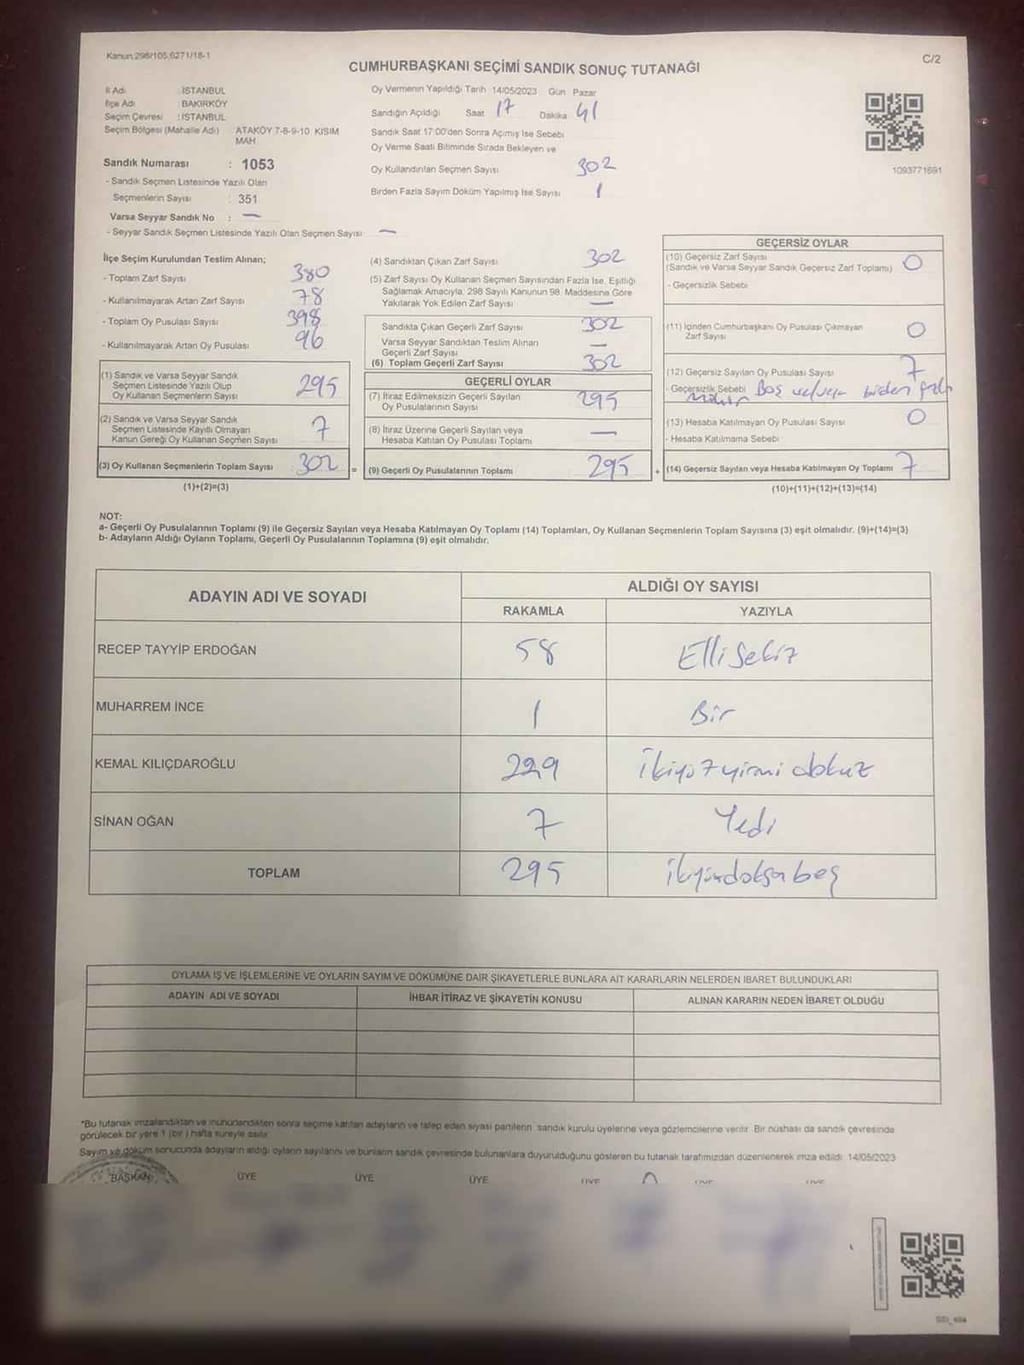 Kanun:298/105,6271/18-1
C/2
CUMHURBAŞKANI SEÇİMİ SANDIK SONUÇ TUTANAĞI
İl Adı : İSTANBUL
İlçe Adı : BAKIRKÖY
Seçim Çevresi : İSTANBUL
Seçim Bölgesi (Mahalle Adı) ATAKÖY 7-8-9-10 KISIM MAH
Sandık Numarası : 1053
- Sandık Seçmen Listesinde Yazılı Olan
Seçmenlerin Sayısı : 351
Varsa Seyyar Sandık No : —
- Seyyar Sandık Seçmen Listesinde Yazılı Olan Seçmen Sayısı —
Oy Vermenin Yapıldığı Tarih 14/05/2023 Gün Pazar
Sandığın Açıldığı Saat 17 Dakika 41
Sandık Saat 17:00'den Sonra Açımış İse Sebebi
Oy Verme Saati Bitiminde Sırada Bekleyen ve
Oy Kullandırılan Seçmen Sayısı 302
Birden Fazla Sayım Döküm Yapılmış İse Sayısı 1
1093771691
İlçe Seçim Kurulundan Teslim Alınan;
- Toplam Zarf Sayısı 380
- Kullanılmayarak Artan Zarf Sayısı 78
- Toplam Oy Pusulası Sayısı 398
- Kullanılmayarak Artan Oy Pusulası 96
(1) Sandık ve Varsa Seyyar Sandık
Seçmen Listesinde Yazılı Olup
Oy Kullanan Seçmenlerin Sayısı 295
(2) Sandık ve Varsa Seyyar Sandık
Seçmen Listesinde Kayıtlı Olmayan
Kanun Gereği Oy Kullanan Seçmen Sayısı 7
(3) Oy Kullanan Seçmenlerin Toplam Sayısı 302 =
(1)+(2)=(3)
(4) Sandıktan Çıkan Zarf Sayısı 302
(5) Zarf Sayısı Oy Kullanan Seçmen Sayısından Fazla İse, Eşitliği
Sağlamak Amacıyla, 298 Sayılı Kanunun 98. Maddesine Göre
Yakılarak Yok Edilen Zarf Sayısı —
Sandıkta Çıkan Geçerli Zarf Sayısı 302
Varsa Seyyar Sandıktan Teslim Alınan
Geçerli Zarf Sayısı —
(6) Toplam Geçerli Zarf Sayısı 302
GEÇERLİ OYLAR
(7) İtiraz Edilmeksizin Geçerli Sayılan
Oy Pusulalarının Sayısı 295
(8) İtiraz Üzerine Geçerli Sayılan veya
Hesaba Katılan Oy Pusulası Toplamı —
(9) Geçerli Oy Pusulalarının Toplamı 295 +
GEÇERSİZ OYLAR
(10) Geçersiz Zarf Sayısı
(Sandık ve Varsa Seyyar Sandık Geçersiz Zarf Toplamı) 0
- Geçersizlik Sebebi
(11) İçinden Cumhurbaşkanı Oy Pusulası Çıkmayan
Zarf Sayısı 0
(12) Geçersiz Sayılan Oy Pusulası Sayısı 7
- Geçersizlik Sebebi Boş birden fazla
(13) Hesaba Katılmayan Oy Pusulası Sayısı 0
- Hesaba Katılmama Sebebi
(14) Geçersiz Sayılan veya Hesaba Katılmayan Oy Toplamı 7
(10)+(11)+(12)+(13)=(14)
NOT:
a- Geçerli Oy Pusulalarının Toplamı (9) ile Geçersiz Sayılan veya Hesaba Katılmayan Oy Toplamı (14) Toplamları, Oy Kullanan Seçmenlerin Toplam Sayısına (3) eşit olmalıdır. (9)+(14)=(3)
b- Adayların Aldığı Oyların Toplamı, Geçerli Oy Pusulalarının Toplamına (9) eşit olmalıdır.
ADAYIN ADI VE SOYADI ALDIĞI OY SAYISI
RAKAMLA YAZIYLA
RECEP TAYYİP ERDOĞAN 58 Elli Sekiz
MUHARREM İNCE 1 Bir
KEMAL KILIÇDAROĞLU 229 İkiyüz yirmi dokuz
SİNAN OĞAN 7 Yedi
TOPLAM 295 ikiyüzdoksanbeş
OYLAMA İŞ VE İŞLEMLERİNE VE OYLARIN SAYIM VE DÖKÜMÜNE DAİR ŞİKAYETLERLE BUNLARA AİT KARARLARIN NELERDEN İBARET BULUNDUKLARI
ADAYIN ADI VE SOYADI İHBAR İTİRAZ VE ŞİKAYETİN KONUSU ALINAN KARARIN NEDEN İBARET OLDUĞU
*Bu tutanak imzalandıktan ve mühürlendikten sonra seçime katılan adayların ve talep eden siyasi partilerin sandık kurulu üyelerine veya gözlemcilerine verilir. Bir nüshası da sandık çevresinde
görülecek bir yere 1 (bir) hafta süreyle asılır.
Sayım ve döküm sonucunda adayların aldığı oyların sayılarını ve bunların sandık çevresinde bulunanlara duyurulduğunu gösteren bu tutanak tarafımızdan düzenlenerek imza edildi. 14/05/2023
BAŞKAN ÜYE ÜYE ÜYE ÜYE ÜYE ÜYE